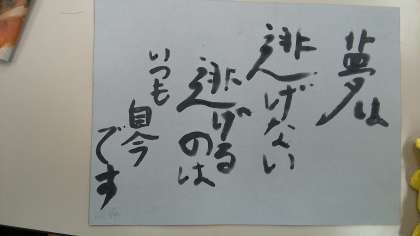 夢は
逃げない
逃げるのは
いつも
自分
です